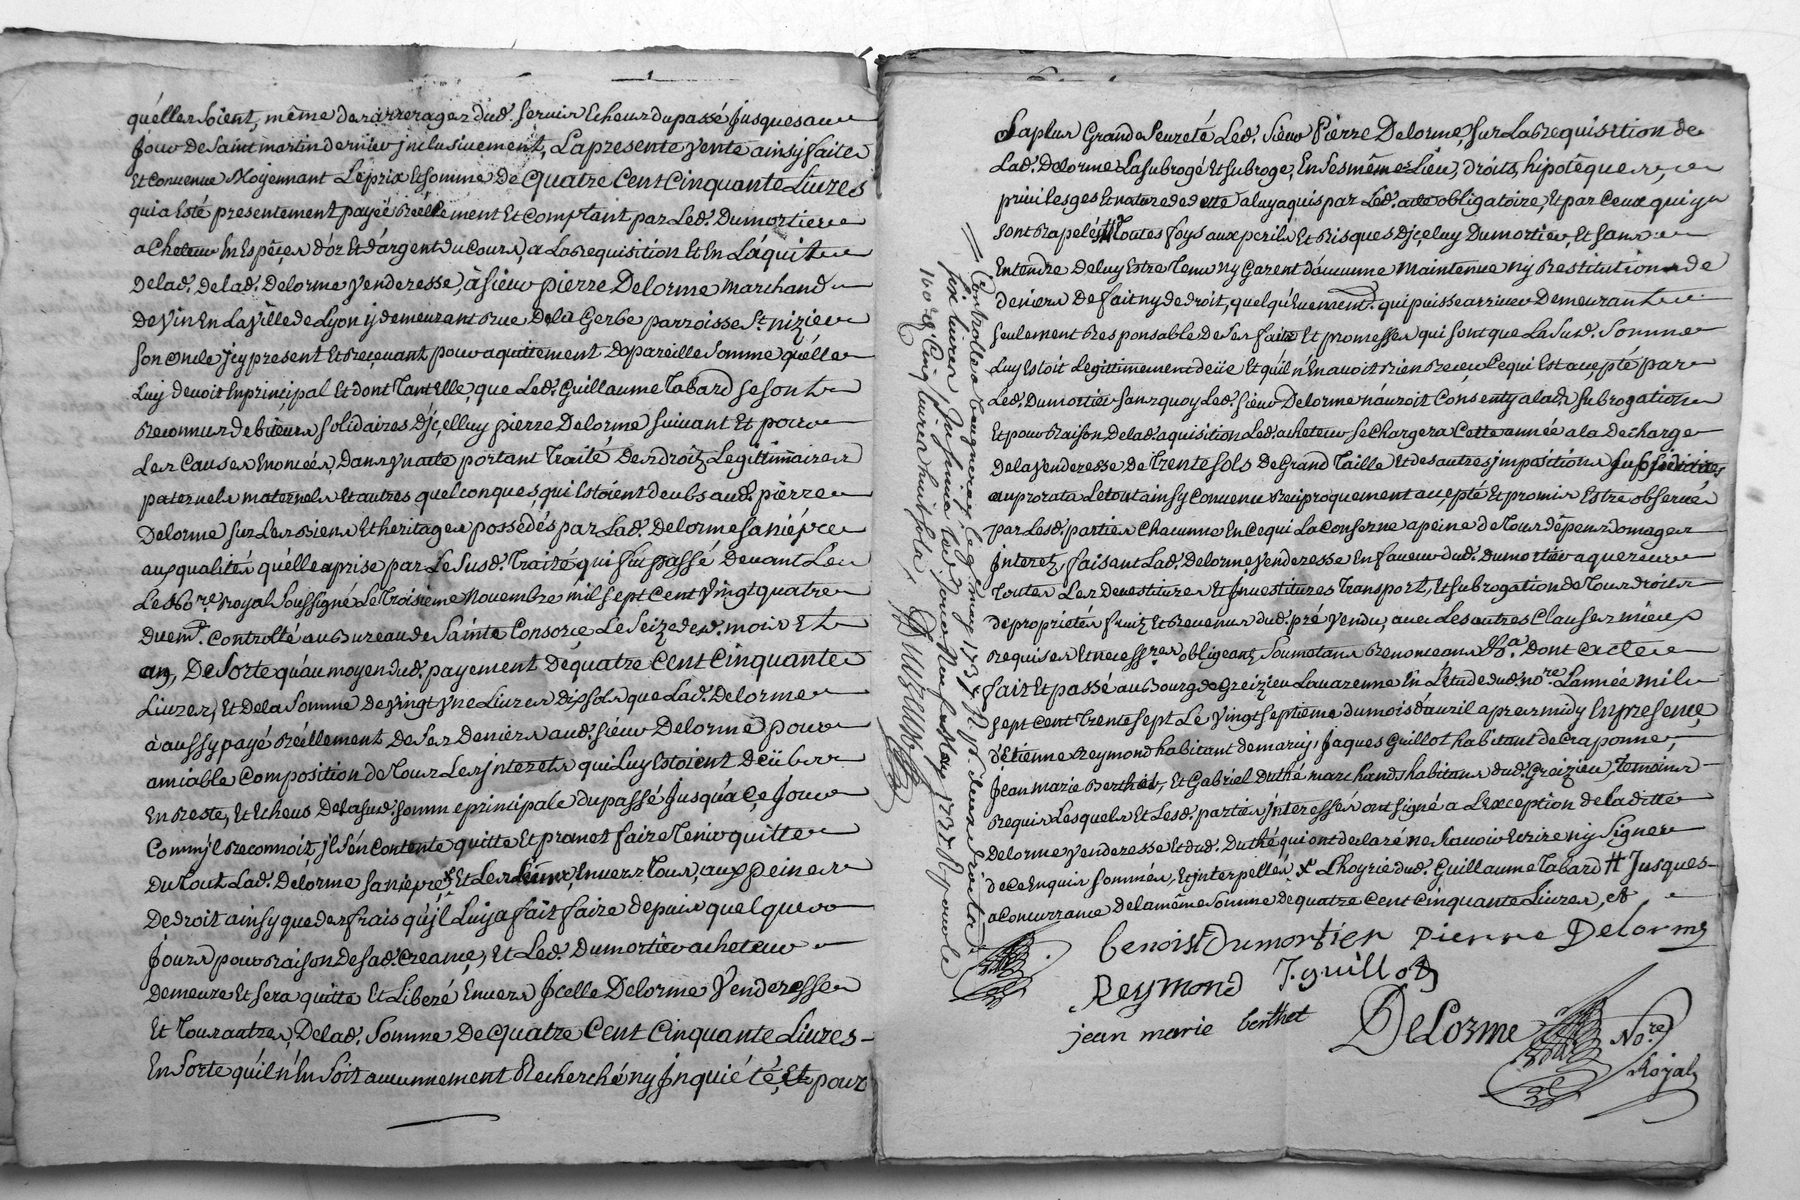 quélles soient, même des arrerages dud. servis Echeus du passé Jusques au
Jour de Saint martin dernier jnclusivement, La presente vente ainsy faite
Et convenue Moyennant Le prix Et somme de Quatre Cent Cinquante Livres
qui a Esté presentement payéë Réellement Et Comptant par Led. Dumortier
acheteur En Espêçes d'or Et d'argent du Cours, a La Requisition Et En L'áquit
de Lad. de Lad. Delorme Venderesse, à sieur pierre Delorme Marchand
de Vin En La Ville de Lyon ÿ demeurant Rue de La Gerbe parroisse St. nizier
son oncle jcy present Et Reçevant pour aquittement de pareille somme qu'élle
Luy devoit En prinçipal Et dont Tant Elle, que Led. Guillaume Tabard se sont
Reconnus debiteurs solidaires d'jçelluy pierre Delorme suivant Et pour
Les Causes Enoncées, Dans Vn acte portant Traité des droits Legitimaires
paternels maternels Et autres quelconques, qui Estoient deubs aud. pierre
Delorme sur Les Biens Et heritages possedés par Lad. Delorme sa niépce
aux qualités qu'élle a prise par Le Susd. Traité qui fut passé Devant Le
Led. No.re Royal Soussigné Le Troisieme Novembre mil sept cent Vingt quatre
Duem.t Controllé au Bureau de Sainte Consorce Le Seize desd. mois Et
an, De Sorte qu'au moyen dud. payement de quatre Cent Cinquante
Livres, Et de La Somme de Vingt Vne Livres dix sols que Lad. Delorme
à aussy payé Réellement de Ses Deniers aud. sieur Delorme pour
amiable Composition de Tous Les jnterets qui Luy Estoient deübs
En Reste, Et Echeus de La sud. somme principale du passé Jusqu'à Çe Jour
Comm'jl Reconnoit, jl s'en Contente quitte Et promet faire Tenir quitte
Du Tout Lad. Delorme sa niepçe, x Et Les Siens, Envers Tous, aux peines
De droit ainsy que des frais qu'jl Luy a fait faire depuis quelques
Jours pour Raison de sad. Creançe, Et Led. Dumortier acheteur
demeure Et sera quitte Et Liberé Envers Jcelle Delorme Venderesse
Et Tous autres, De Lad. Somme De Quatre Cent Cinquante Livres -
En Sorte qu'il n'En Soit aucunnement Recherché ny Jnquiété, Et pour
La plus Grande Seureté Led. Sieur Pierre Delorme, sur La Requisition de
Lad. Delorme La subrogé Et subroge, En Ses même Lieu, droits, hipotêques,
privilesges Et nature de dette a luy aquis par Led. acte obligatoire, Et par Ceux qui y
sont Rapelés # Toutes foys aux perils Et Risques d'jçeluy Dumortier, Et sans
Entendre de luy Estre Tenu ny Garent d'aucune Maintenue ny Restitution de
deniers de fait ny de droit, quelqu'Evenem.t qui puisse arriver Demeurant
seulement Responsable de Ses faits Et promesses qui sont que La Sud. Somme
Luy Estoit Legittimement deüe Et qu'il n'En avoit Rien Reçeu Ce qui Est accepté par
Led. Dumortier sans quoy Led. sieur Delorme n'auroit Consenty a lad. subrogation
Et pour Raison de lad. aquisition Led. acheteur se Chargera Cette année a la decharge
de la Venderesse de Trente Sols de Grand Taille Et des autres jmpositions
au prorata Le tout ainsy Convenu Reciproquement accepté Et promis Estre observé
par Lesd. parties Chacunne En Ce qui La Conserne a peine de Tous dêpens domages
Jnterez, faisant Lad. Delorme Venderesse En faveur dud. Dumortier aquereur
Toutes Les devestitures Et Jnvestitures Transport, Et subrogation de Tous droits
de proprietés fruits Et Revenus dud. pré Vendu, avec Les autres Clauses mieux
Requises Et necess.res obligeans Soumetans Renonceans &a. Dont acte
fait Et passé au Bourg de Greizieu Lavarenne En L'étude dud. no.re L'année mil
sept Cent Trente Sept Le Vingt Septieme du mois d'avril apres midy En presençe
d'Etienne Reymond habitant de marcy, Jaques Guillot habitant de Craponne,
Jean marie Berthet, Et Gabriel Duthé marchands habitans dud. Greizieu, temoins
Requis Lesquels Et Lesd. parties jnteressés ont signé a L'exception de laditte
Delorme Venderesse Et dud. Duthé qui ont declaré ne Scavoir Ecrire ny Signer
de Ce Enquis Sommés, Et jnterpellés, x L'hoyrie dud. Guillaume Tabard # Jusques -
a Concurrance de la même Somme de quatre Cent Cinquante Livres, &
benoist Dumortier pierre Delorme
Reymond J. guillot
jean marie berthet
Delorme No.re
Royal
Controllé a Veugneray Le 9 May 1737 R.
six Livres,
cinq livres huit sols